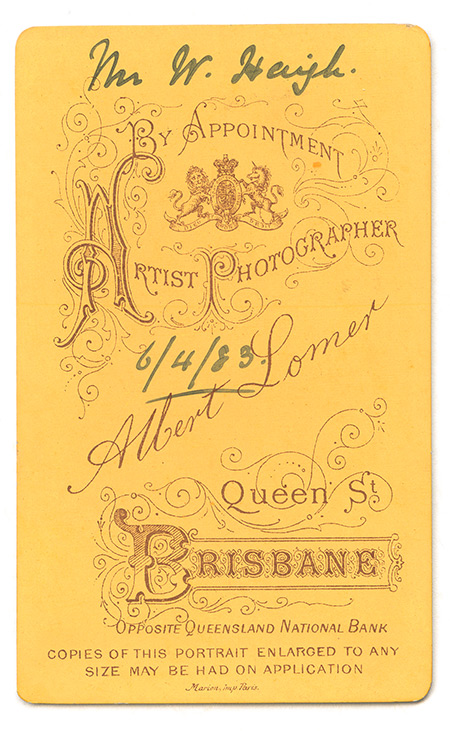 Mr W. Haigh.
By Appointment
Artist Photographer
6/4/83.
Albert Lomer
Queen St
Brisbane
Opposite Queensland National Bank
COPIES OF THIS PORTRAIT ENLARGED TO ANY
SIZE MAY BE HAD ON APPLICATION
Marion, imp Paris.